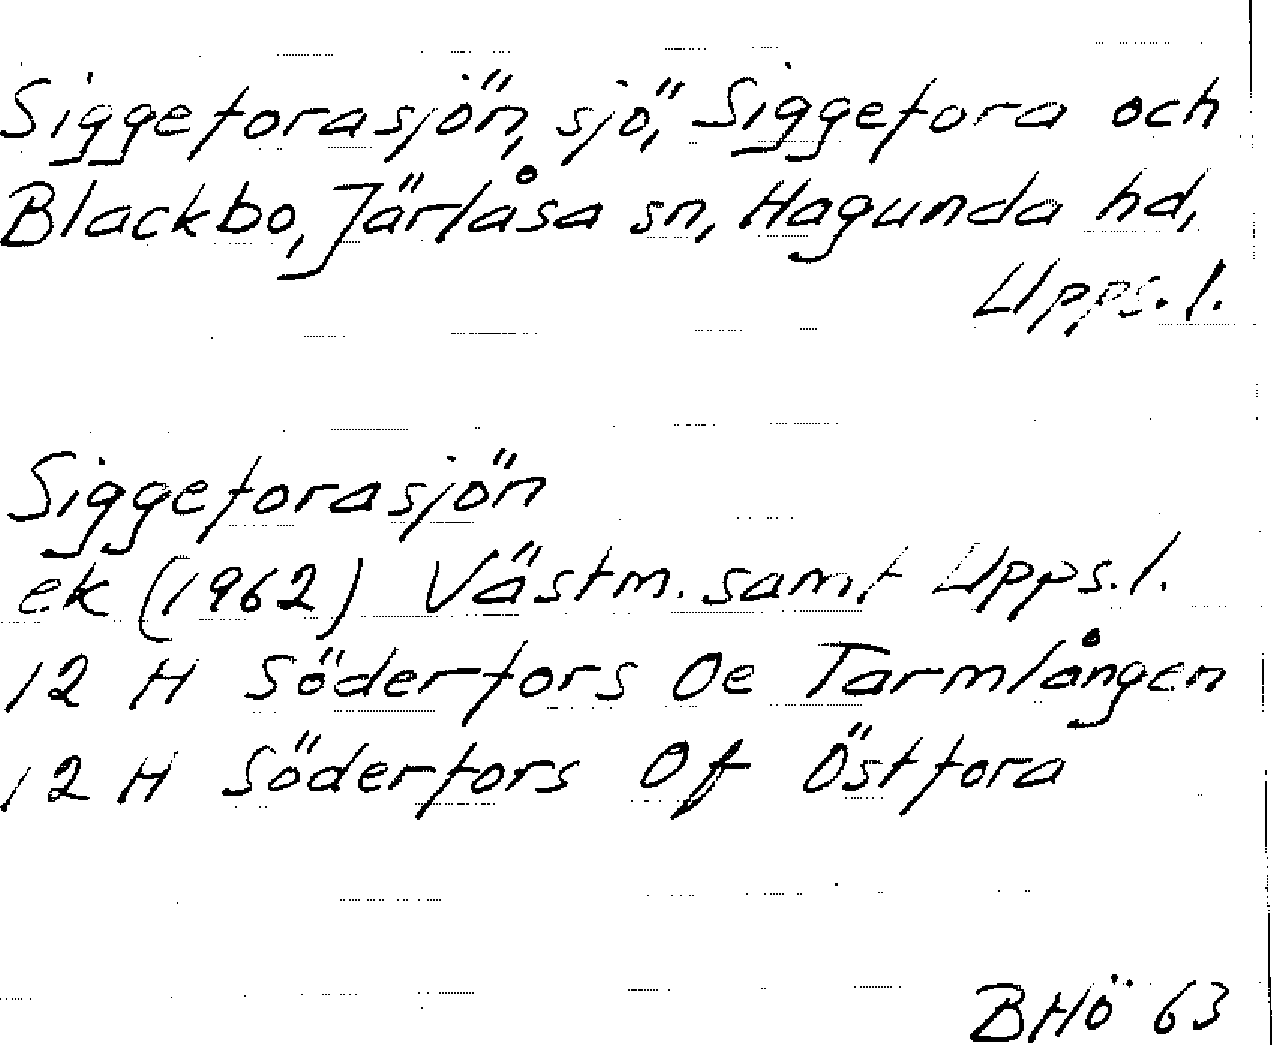 Siggeforasjön, sjö, Siggefora och
Blackbo, Järlåsa sn, Hagunda hd,
Upps. l.
Siggeforasjön
ek (1962) Västm. samt Upps. l.
12 H Söderfors 0e Tarmlången
12 H Söderfors 0f Östfora
BHö 63